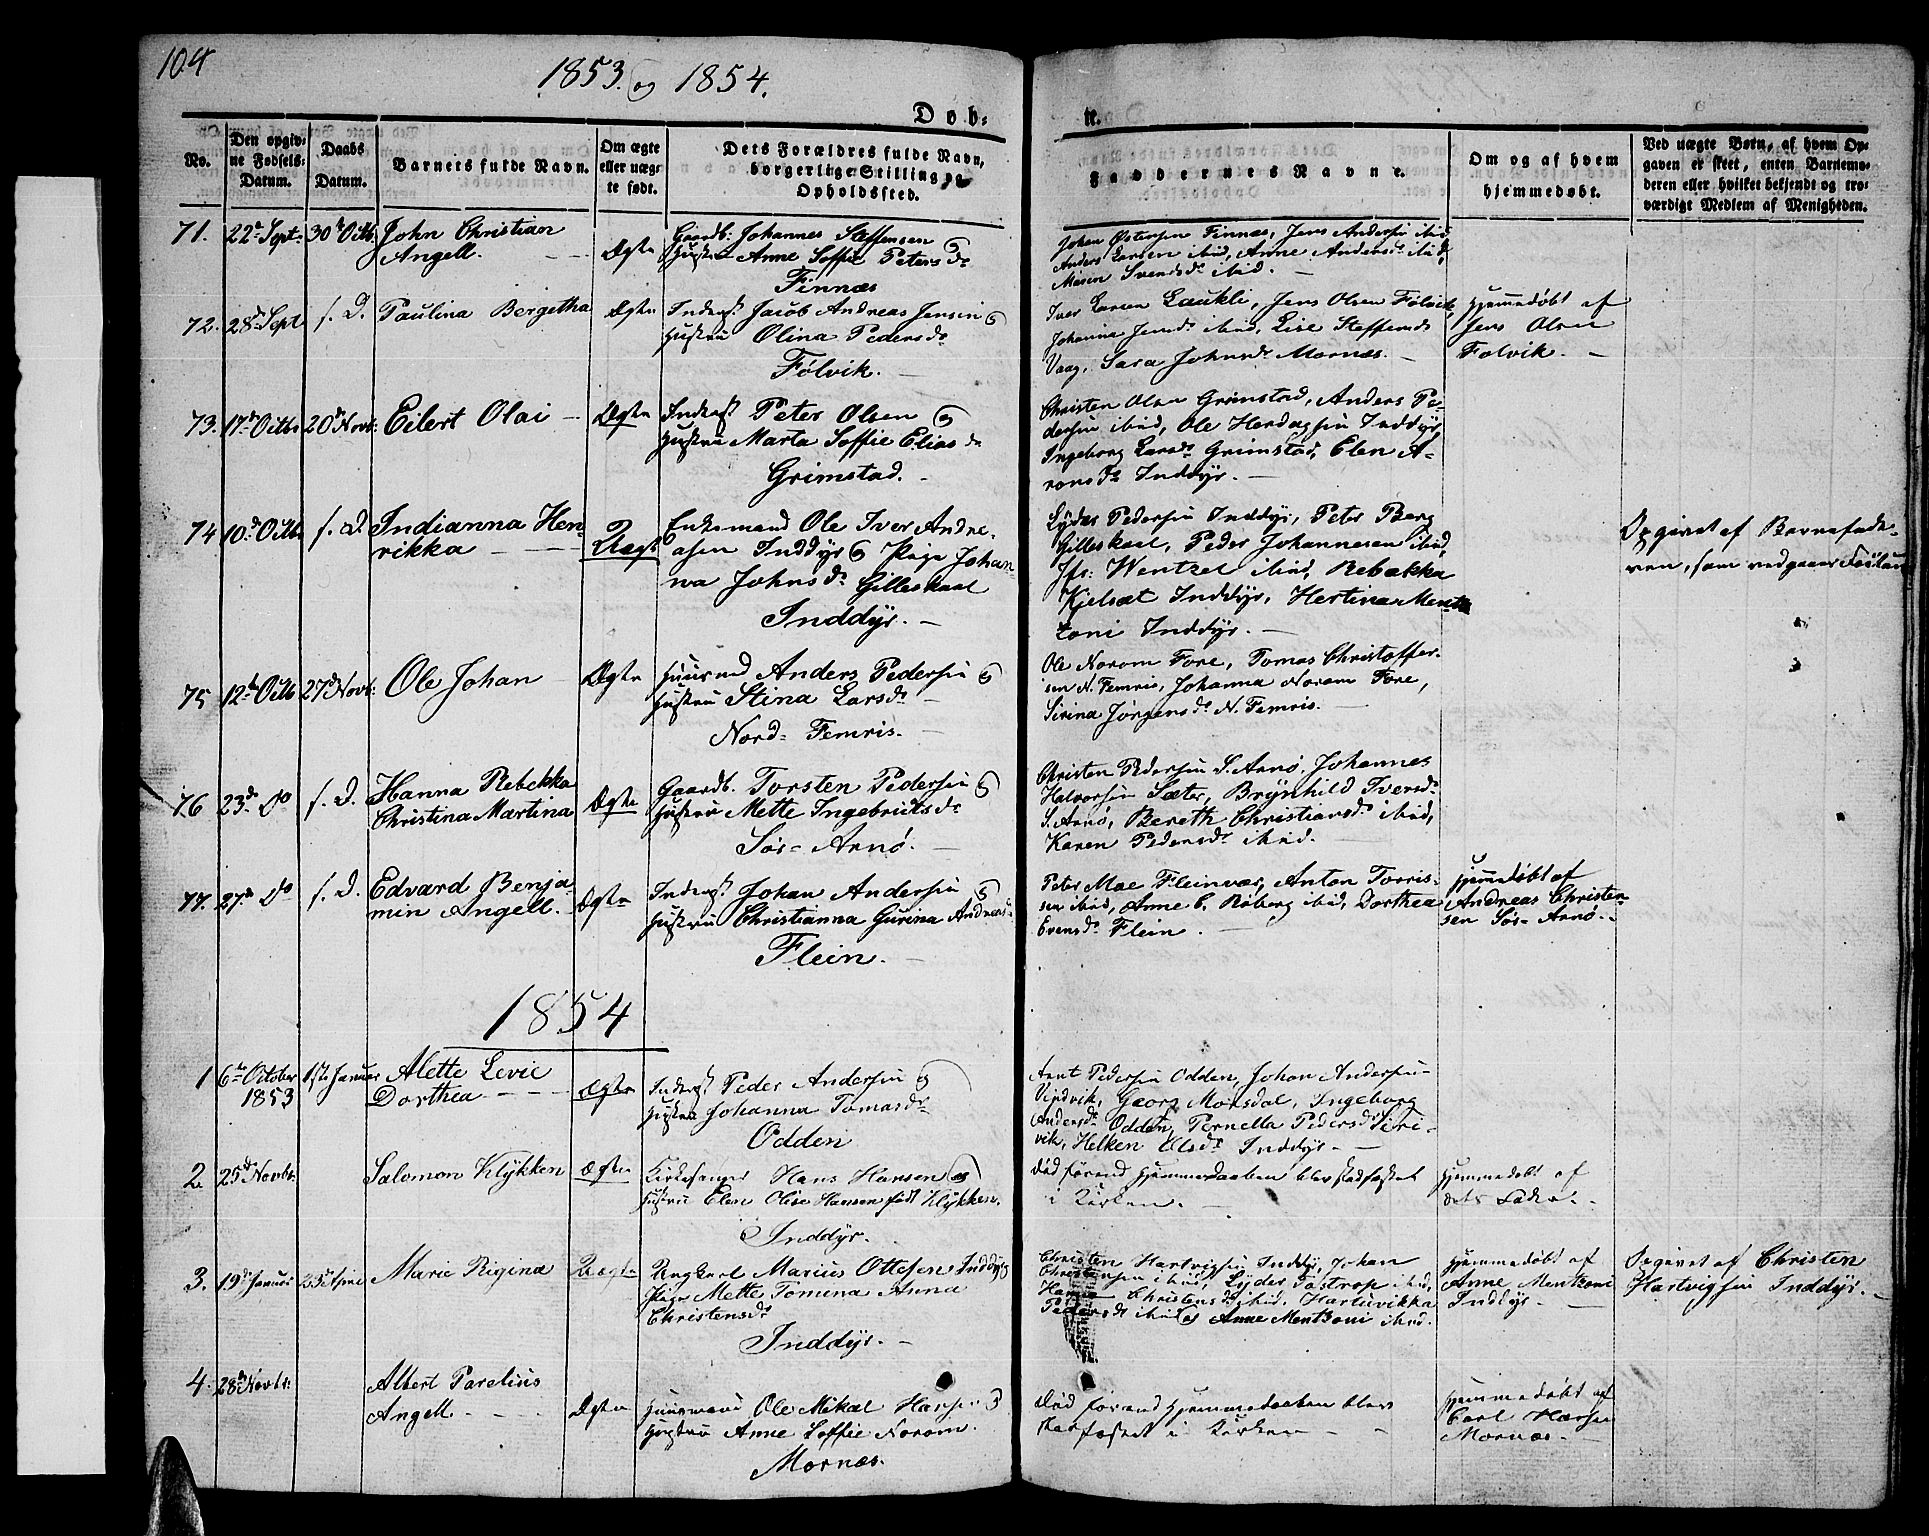 104
1853. og 1854.
Døb-
te.
No.
Den opgiv-
ne Fødsels-
Datum.
Daabs
Datum.
Barnets fulde Navn.
Om ægte
eller uæg-
te født.
Dets Forældres fulde Navn,
borgerlige Stilling og
Opholdssted.
Faddernes Navne.
Om og af hvem
hjemmedøbt.
Ved uægte Børn, af hvem Op-
gaven er skeet, enten Barnemo-
deren eller hvilket bekjendt og tro-
værdigt Medlem af Menigheden.
71. 22de Sept. 30te Octb.
John Christian
Angell.
Ægte
Gaardb. Johannes Steffensen
Hustru Anne Soffie Petersdr
Finnæs
Johan Østersen Finnæs, Jens Andersen ibid
Anders Larsen ibid, Anne Andersdr ibid,
Maren Svendsdr ibid.
72. 28de Sept. s. D.
Paulina Bergetha
Ægte
Inderst Jacob Andreas Jensen og
Hustru Olina Pedersdr
Følvik.
Iver Larsen Laukli, Jens Olsen Følvik,
Johanna Jensdr ibid, Lise Steffensdr
Vaag, Sara Johnsdr Mornæs.
Hjemmedøbt af
Jens Olsen
Følvik.
73. 17de Octbr 20de Novbr:
Eilert Olai
Ægte
Inderst Peter Olsen og
Hustru Marta Soffie Eliasdr
Grimstad.
Christen Olsen Grimstad, Anders Pe-
dersen ibid, Ole Herdagsen Inddyr,
Ingeborg Larsdr Grimstad, Elen A-
ronsdr Inddyr.
74 10de Octb. s. D.
Indianna Hen-
rikka
Uægte
Enkemand Ole Iver Andre-
asen Inddyr og Pige Johan-
na Johnsdr Gilleskaal
Inddyr.
Lyder Pedersen Inddyr, Peter Berg
Gilleskaal, Peder Johannesen ibid,
Jfr: Wentzel ibid, Rebækka
Kjelsæt Inddyr, Hertina Ment-
zoni Inddyr.
Opgivet af Barnefade-
ren, som vedgaaer
75 12te Octb 27de Novb:
Ole Johan
Ægte
Huusmd Anders Pedersen og
Hustru Stina Larsdr
Nord-Femris.
Ole Norom Fore, Tomas Christoffer-
sen N. Femris, Johanna Norom Fore,
Sirina Jørgensdr N. Femris.
76 23de Do s. D.
Hanna Rebekka
Christina Martina
Ægte
Gaardb. Torsten Pedersen og
Hustru Mette Ingebrictsdr
Sør-Arnø.
Christen Pedersen S. Arnø, Johannes
Halvorsen Sæter, Brynhild Iversdr
S. Arnø, Bereth Christiansdr ibid,
Karen Pedersdr ibid.
77. 27de Do s. D.
Edvard Benja-
min Angell.
Ægte
Inderst Johan Andersen og
Hustru Christianna Gurina Andreasdr
Flein.
Peter Moe Fleinvær, Anton Torris-
sen ibid, Anne C. Røberg ibid, Dorthea
Evensdr Flein.
Hjemmedøbt af
Andreas Christen-
sen Sør-Arnø.
1854
1 6te October 1ste Januar
1853
Alette Levie
Dorthea
Ægte
Inderst Peder Andersen og
Hustru Johanna Tomasdr
Odden
Arnt Pedersen Odden, Johan Andersen
Vindvik, Georg Monsdal, Ingeborg
Andersdr Odden, Pernella Pedersdr Seri-
vik, Helken Olsdr Inddyr.
2. 25de Novbr.
Salomon Klykken
Ægte
Kirkesanger Hans Hansen og
Hustru Elen Olise Hansen født Klykken.
Inddyr.
Død førend Hjemmedaaben blev stadfæstet
i Kirken.
Hjemmedøbt af
dets Fader.
3. 19de Januar 23de
Marie Regina
Uægte
Ungkarl Marius Ottesen Inddyr
Pige Mette Tomina Anna
Christensdr
Inddyr.
Christen Hartvigsen Inddyr, Johan
Christensen ibid, Lyder Tostrop ibid,
Hanna Christensdr ibid, Hartuvikka
Pedersdr ibid og Anne Mentzoni ibid.
Hjemmedøbt af
Anne Mentzoni
Inddyr.
Opgivet af Christen
Hartvigsen Inddyr.
4. 28de Novbr:
Albert Parelius
Angell.
Ægte
Huusmand Ole Mikal Hansen og
Hustru Anne Soffie Norom.
Mornæs.
Død førend Hjemmedaaben blev
stadfæstet i Kirken
Hjemmedøbt af
Carl Hansen
Mornæs.